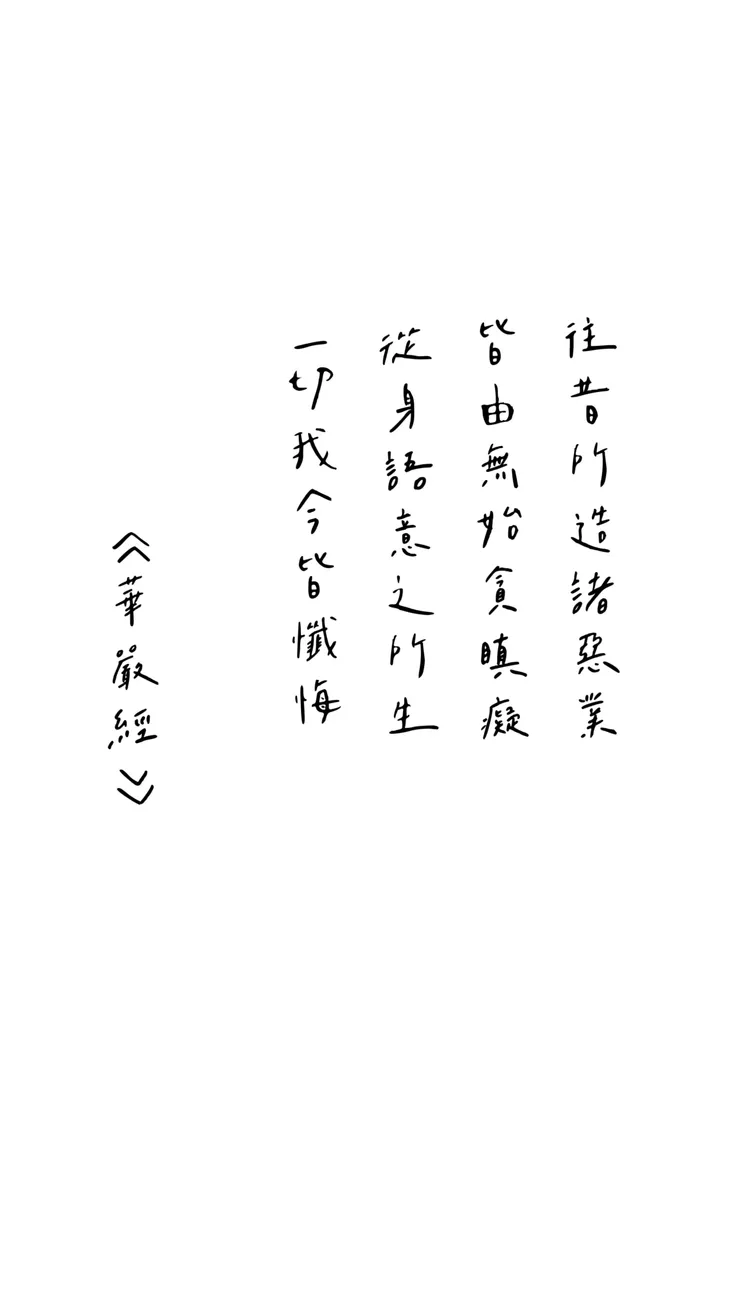 往昔所造諸惡業
皆由無始貪瞋癡
從身語意之所生
一切我今皆懺悔
《華嚴經》